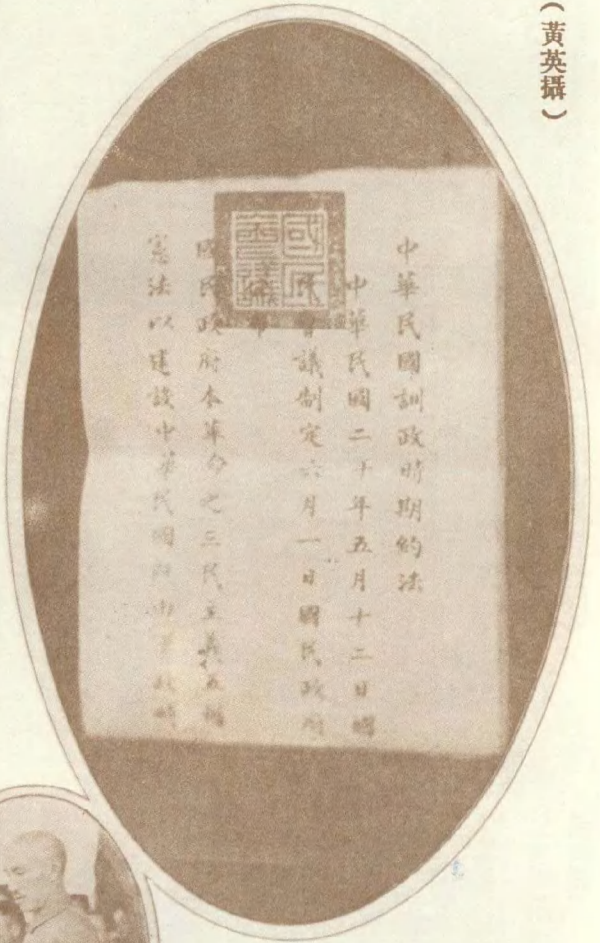 （黃英攝）
中華民國訓政時期約法
中華民國二十年五月十二日國
民會議制定六月一日國民政府
布
國民政府本革命之三民主義五權
憲法以建設中華民國既由軍政時